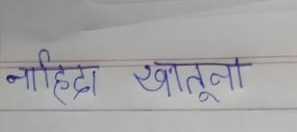 नाहिदा खातूना